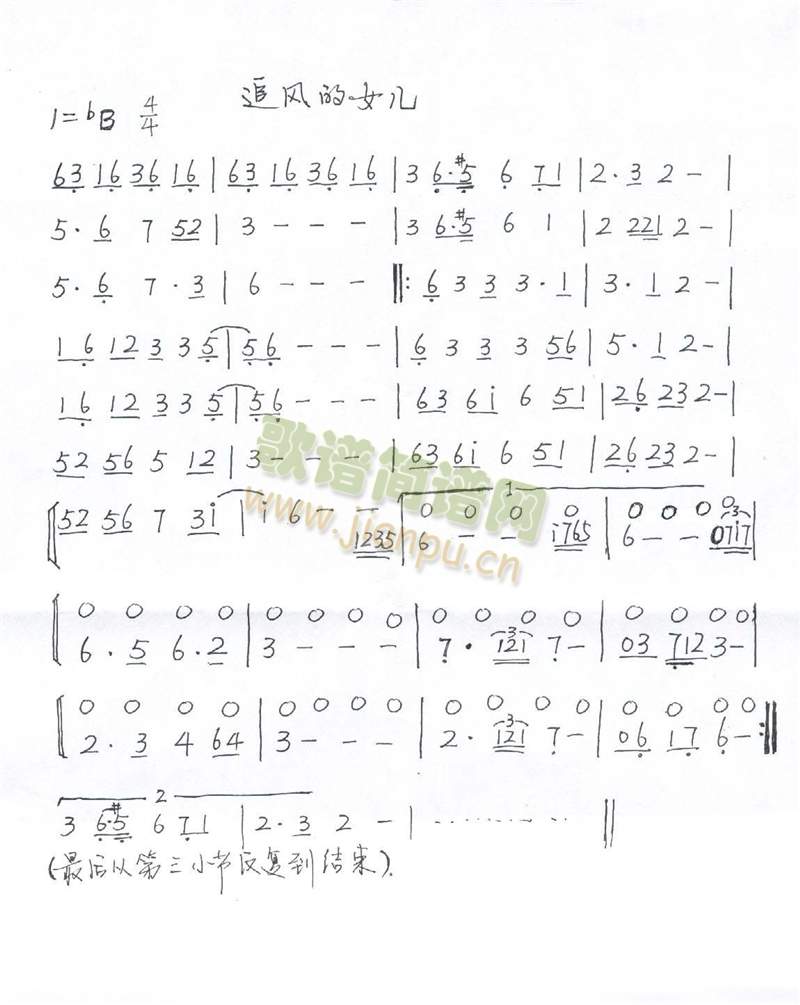 追风的女儿
1=bB 4/4
63 16 36 16 | 63 16 36 16 | 3 6·#5 6 71 | 2·3 2 - |
5·6 7 52 | 3 - - - | 3 6·#5 6 1 | 2 221 2 - |
5·6 7·3 | 6 - - - ‖: 6 3 3 3·1 | 3·1 2 - |
16 12 3 3 5 | 56 - - - | 6 3 3 3 56 | 5·1 2 - |
16 12 3 3 5 | 56 - - - | 63 6i 6 51 | 26 23 2 - |
52 56 5 12 | 3 - - - | 63 6i 6 51 | 26 23 2 - |
1
52 56 7 3i | i 6 - - | 0 0 0 0 | 0 0 0 0 |
1235 | 6 - - i765 | 6 - - 07i7 |
0 0 0 0 | 0 0 0 0 | 0 0 0 0 | 0 0 0 0 |
6·5 6·2 | 3 - - - | 7· 121 7 - | 03 712 3 - |
0 0 0 0 | 0 0 0 0 | 0 0 0 0 | 0 0 0 0
2·3 4 64 | 3 - - - | 2· 121 7 - | 06 17 6 - :‖
2
3 6·#5 6 71 | 2·3 2 - | ············ ‖
(最后从第三小节反复到结束).
歌谱简谱网
www.jianpu.cn